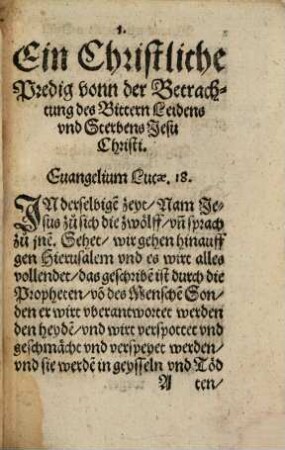 1.
Ein Christliche
Predig vonn der Betrach⸗
tung des Bittern Leidens
vnd Sterbens Jesu
Christi.
Euangelium Lucæ. 18.
JN derselbigẽ zeyt/ Nam Je⸗
sus zů sich die zwölff/ vñ sprach
zů jnẽ. Sehet/ wir gehen hinauff
gen Hierusalem vnd es wirt alles
vollendet/ das geschribẽ ist durch die
Propheten/ võ des Menschẽ Son/
den er wirt vberantwortet werden
den heydẽ/ vnd wirt verspottet vnd
geschmächt vnd verspeyet werden/
vnd sie werdẽ in geysseln vnd Töd
A ten/